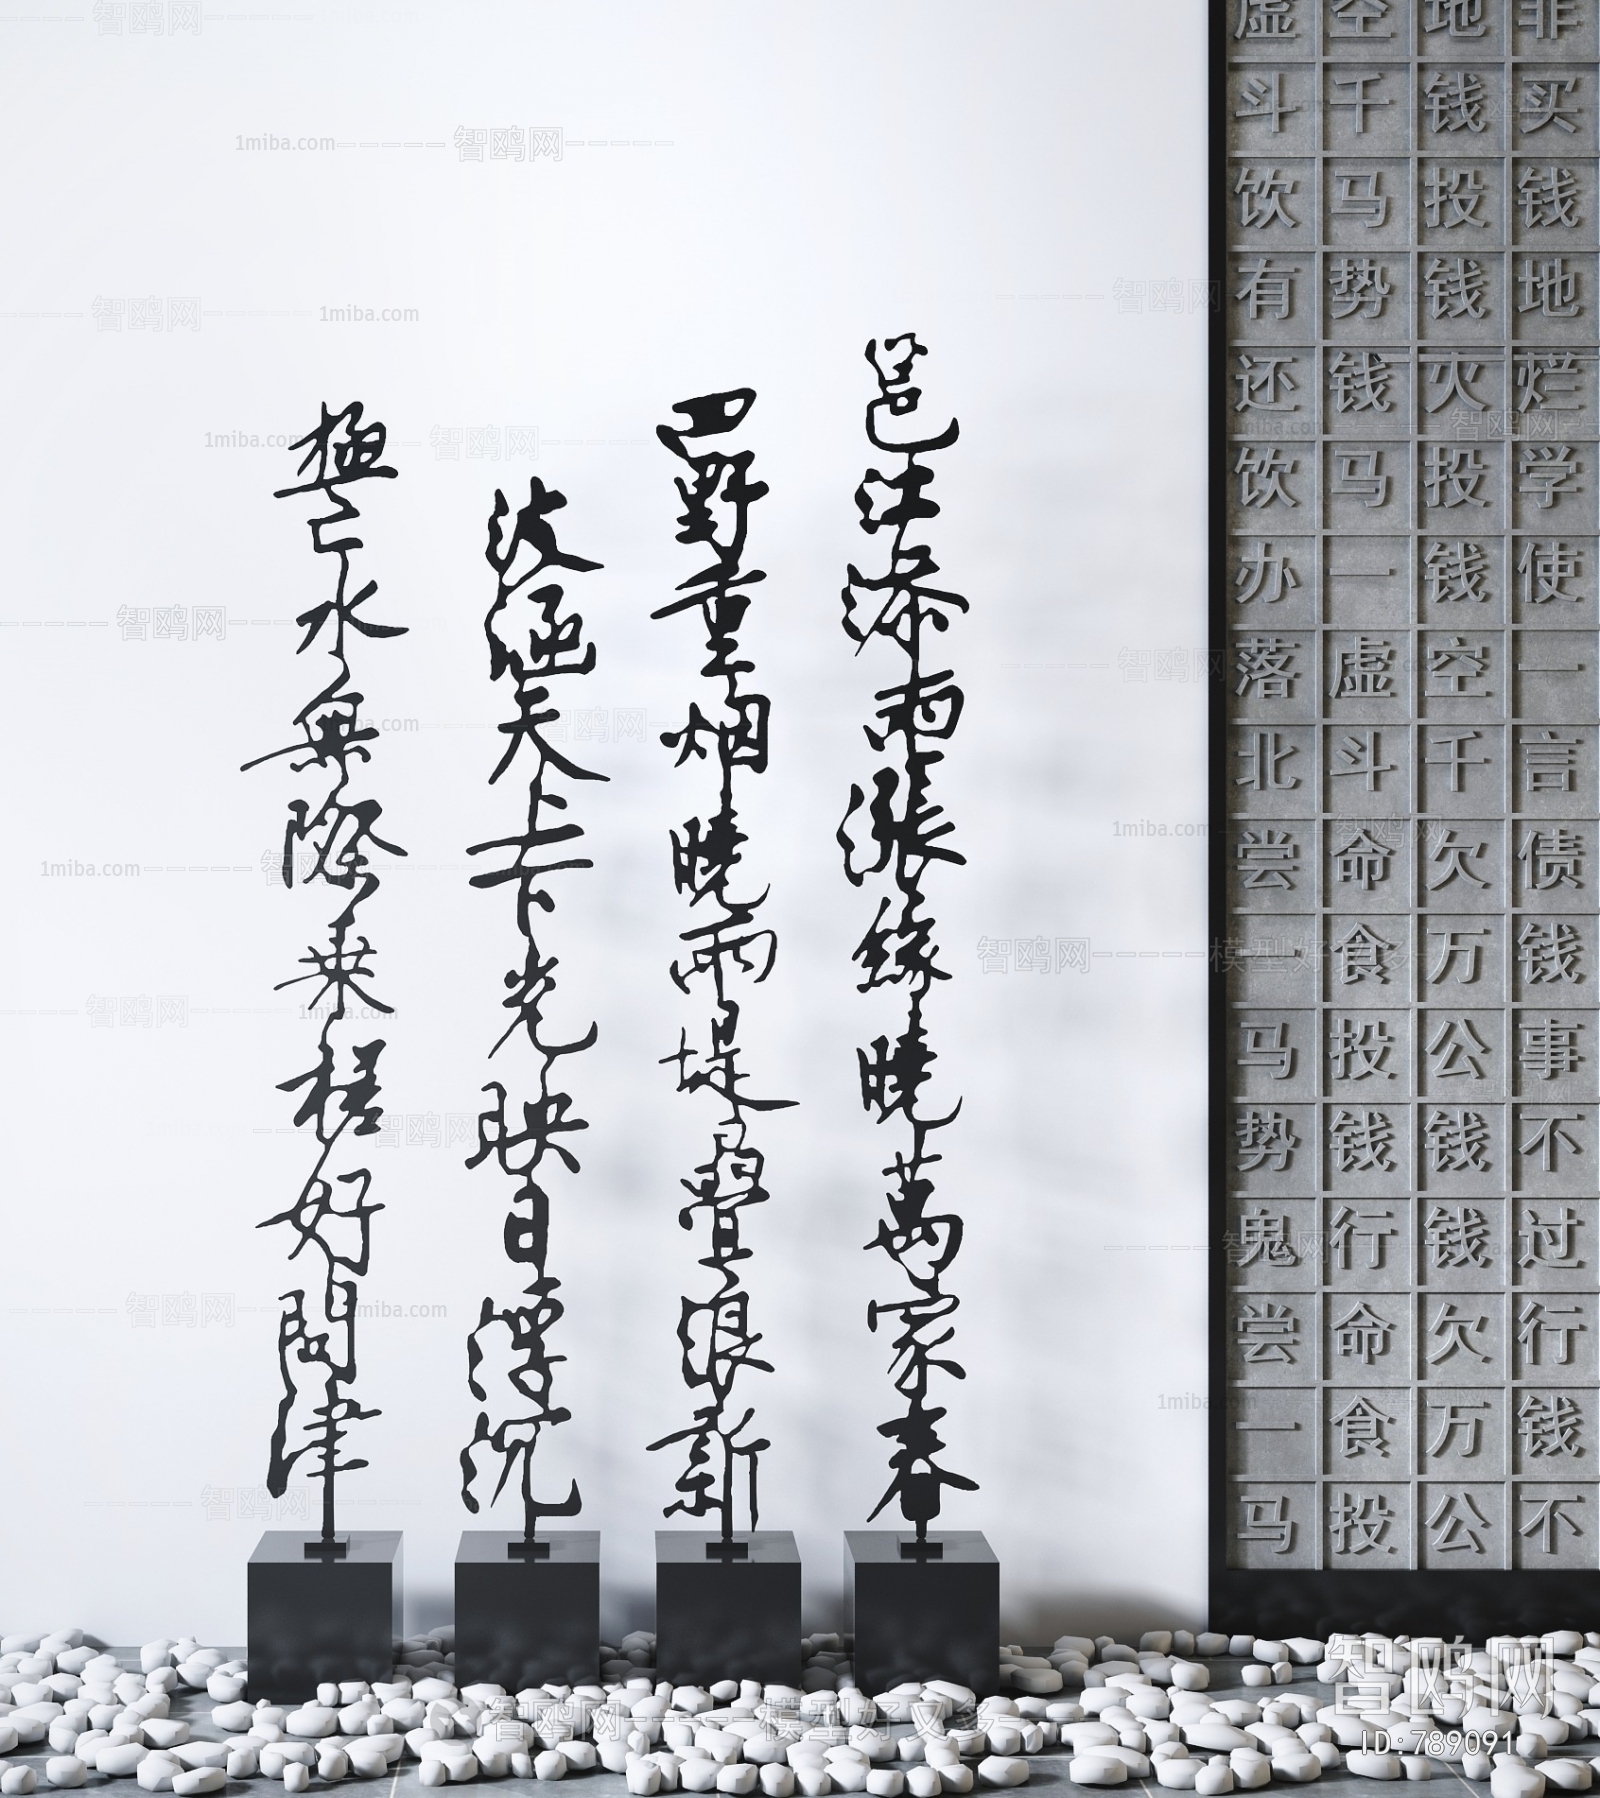 邕江添雨漲緣曉萬家春
野重烟曉雨堤疊浪新
波涵天上下光映日浮沉
極水無際乘槎好問津
虚空地非
斗千钱买
饮马投钱
有势钱地
还钱火烂
饮马投学
办一钱使
落虚空一
北斗千言
尝命欠债
一食万钱
马投公事
势钱钱不
鬼行钱过
尝命欠行
一食万钱
马投公不
智鸥网
ID:789091
1miba.com